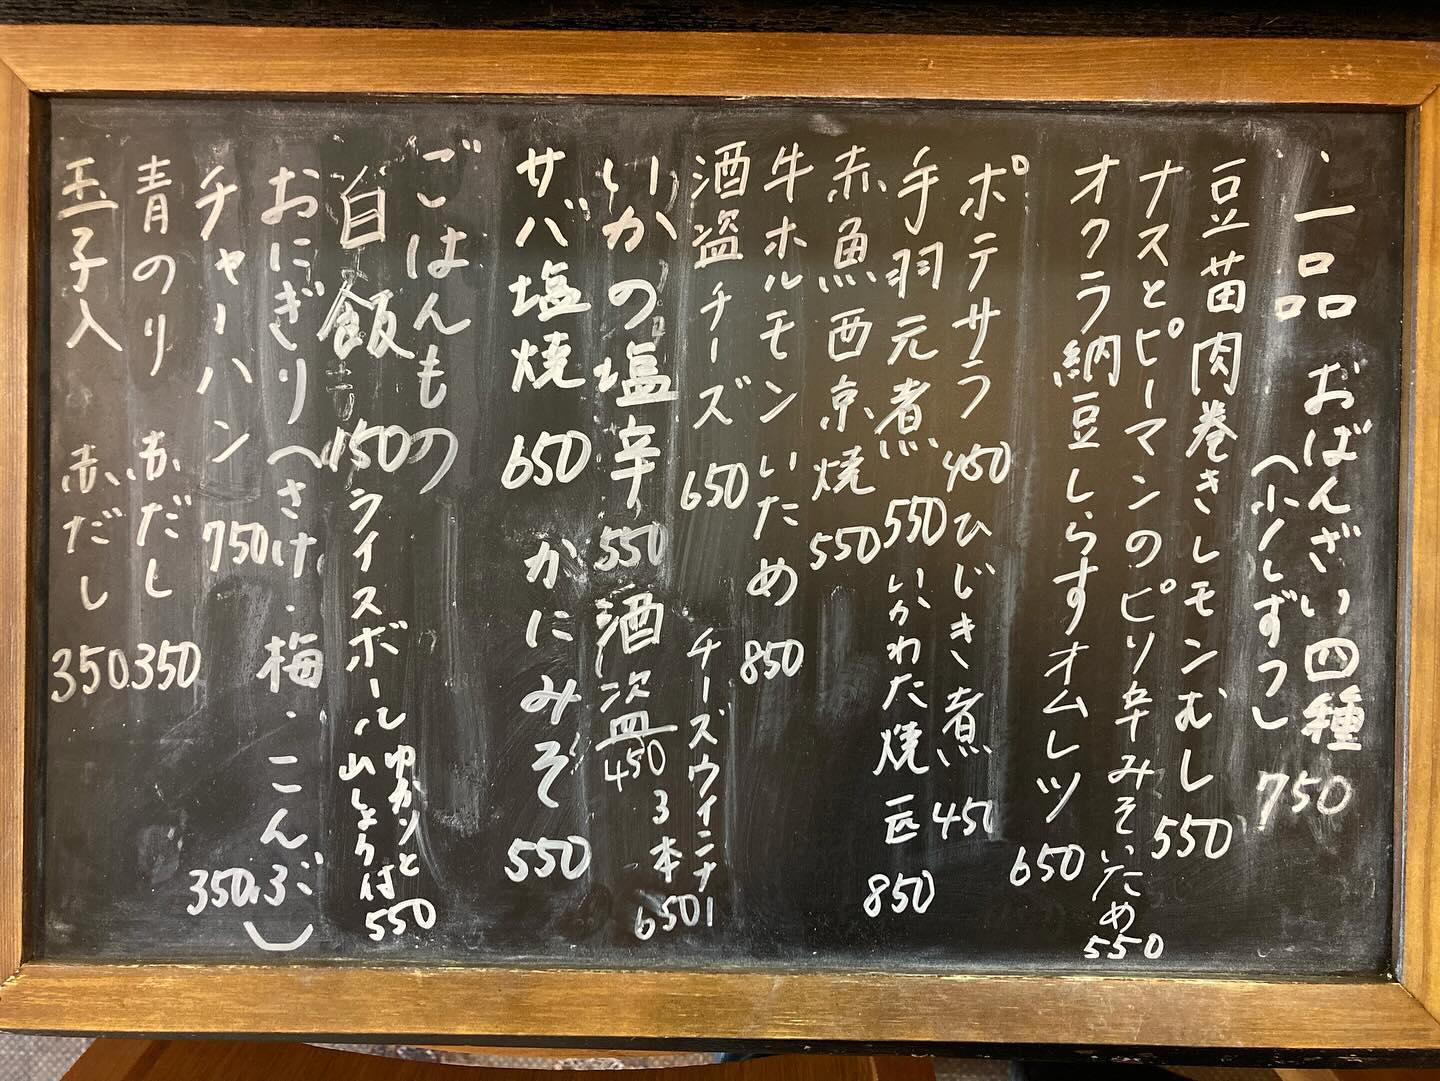 一品 おばんざい四種 750
(少しずつ)
豆苗肉巻きレモンむし 550
ナスとピーマンのピリ辛みそいため 550
オクラ納豆しらすオムレツ 650
ポテサラ 450 ひじき煮 450
手羽元煮 550 いかわた焼 850
赤魚西京焼 550
牛ホルモンいため 850
酒盗チーズ 650 チーズウインナー
3本 650
いかの塩辛 550 酒盗 450
サバ塩焼 650 かにみそ 550
ごはんもの
白飯 150 ライスボール ゆかりと
山しょうは 550
おにぎり(さけ・梅・こんぶ) 350
チャーハン 750
青のり 赤だし 350
玉子入 赤だし 350